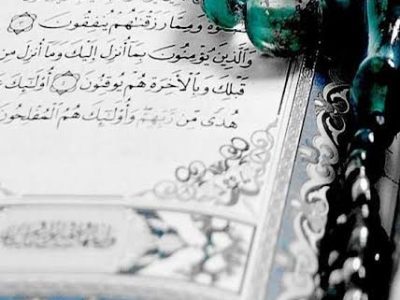 وَمِمَّا رَزَقْنَٰهُمْ يُنفِقُونَ
وَٱلَّذِينَ يُؤْمِنُونَ بِمَآ أُنزِلَ إِلَيْكَ وَمَآ أُنزِلَ مِن
قَبْلِكَ وَبِٱلْأَخِرَةِ هُمْ يُوقِنُونَ أُو۟لَٰٓئِكَ
هُدًى مِّن رَّبِّهِمْ وَأُو۟لَٰٓئِكَ هُمُ ٱلْمُفْلِحُونَ